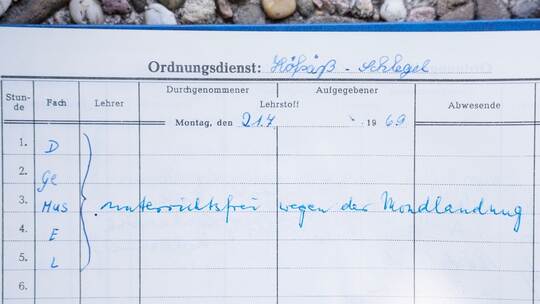 Ordnungsdienst: - Schlegel
Stun-
de
Fach
Lehrer
Durchgenommener
Aufgegebener
Lehrstoff
Abwesende
Montag, den 21.7 1969
1. D
2. Ge
3. Mus unterrichtsfrei wegen der Mondlandung
4. E
5. L
6.